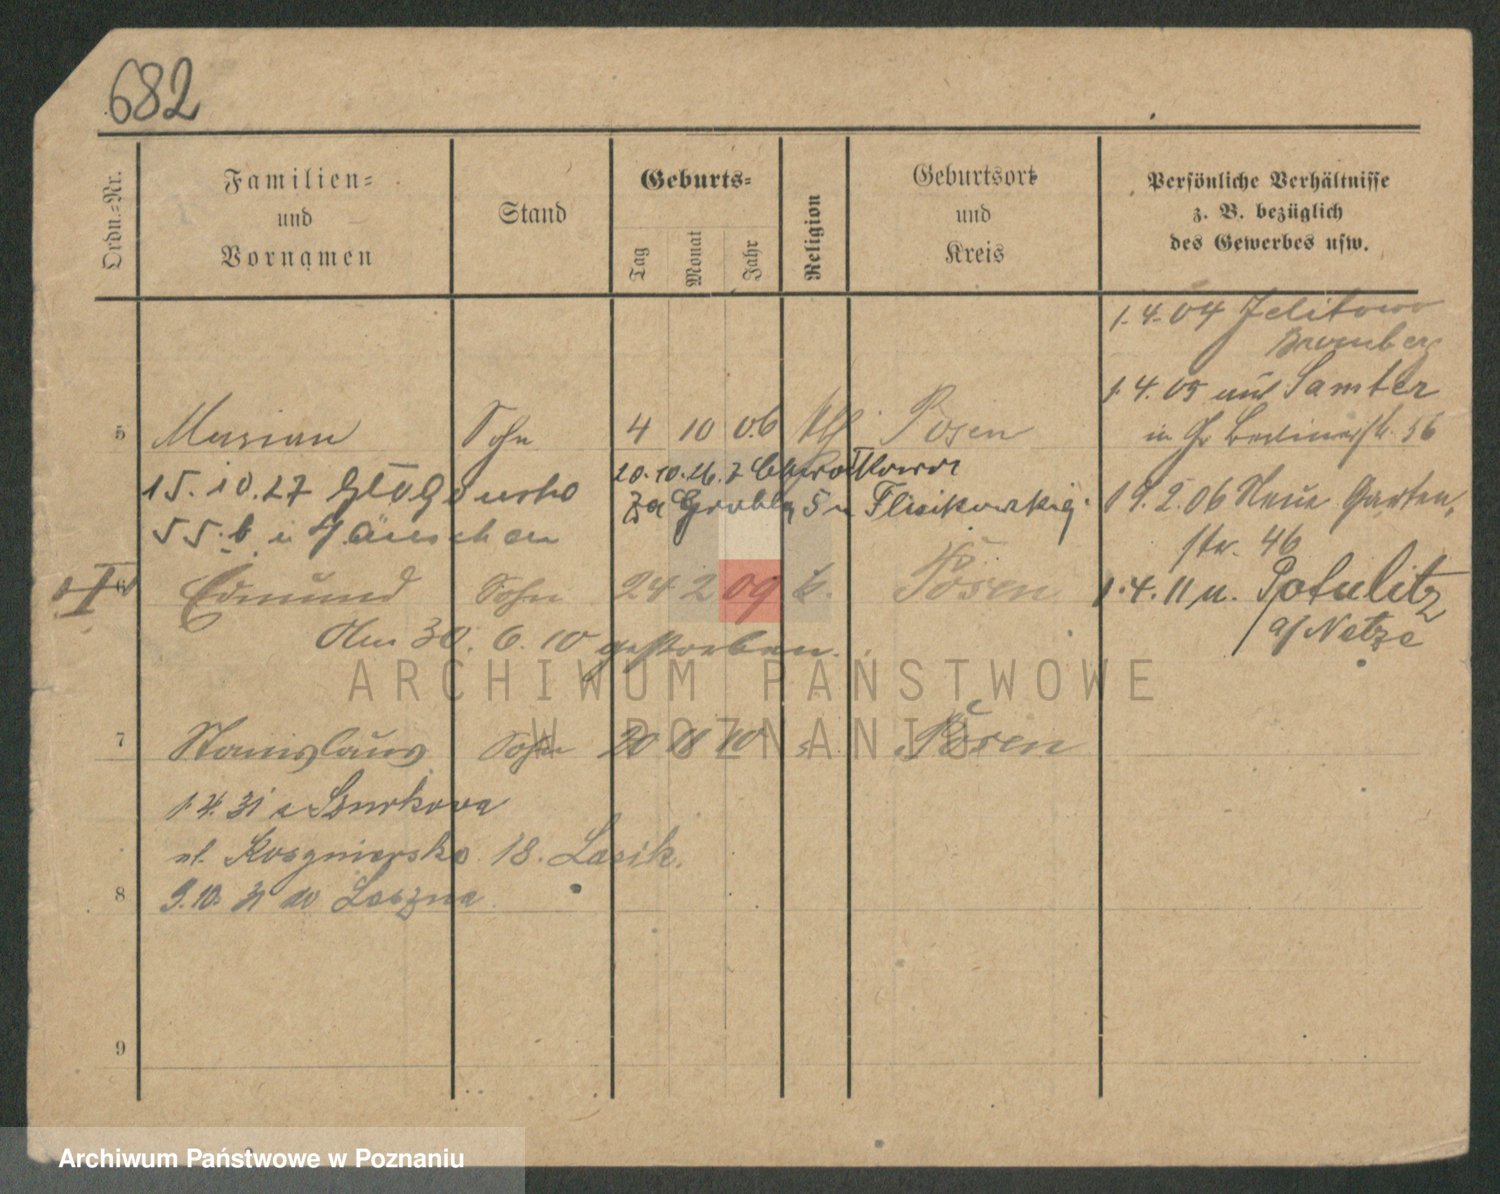 682
Ordn.=Nr.
Familien=
und
Vornamen
Stand
Geburts=
Tag
Monat
Jahr
Religion
Geburtsort
und
Kreis
Persönliche Verhältnisse
z. B. bezüglich
des Gewerbes usw.
1.4.04 Jelitowo
Bromberg
1.4.05 aus Samter
in Gr Berlinerstr. 56
5 Marian Sohn 4 10 06 kth Posen
15.10.27
20.10.26. z
19.2.06 Neue Garten
str. 46
55.b. u
6 Edmund Sohn 24 2 09 k. Posen
Am 30.6.10 gestorben.
1.4.11 n. Potulitz
a/Netze
ARCHIWUM PAŃSTWOWE
W POZNANIU
7 Stanislaus Sohn 20 11 10 Posen
1.4.31
18. Lasik.
8 9.10.31 do
9
Archiwum Państwowe w Poznaniu